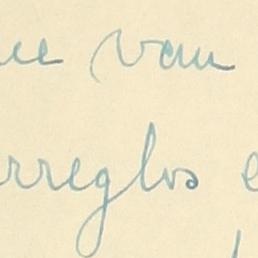 ue van
rreglos e